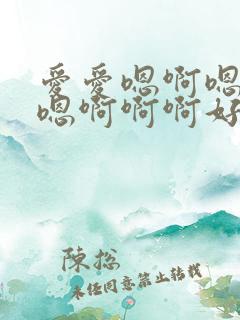 爱爱嗯啊嗯
嗯啊啊啊好
陈总
未经同意禁止转载